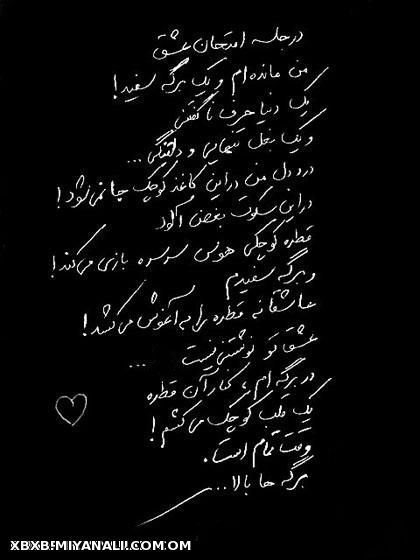 در جلسه امتحان عشق
من مانده‌ام و یک برگه سفید!
یک دنیا حرف ناگفتنی
و یک بغل تنهایی و دلتنگی...
درد دل من در این کاغذ کوچک جا نمی‌شود!
در این سکوت بغض آلود
قطره کوچکی هوس سرسره بازی می‌کند!
و برگه سفیدم
عاشقانه قطره را به آغوش می‌کشد!
عشق تو نوشتنی نیست...
در برگه ام، کنار آن قطره
یک قلب کوچک می‌کشم!
وقت تمام است.
برگه ها بالا...